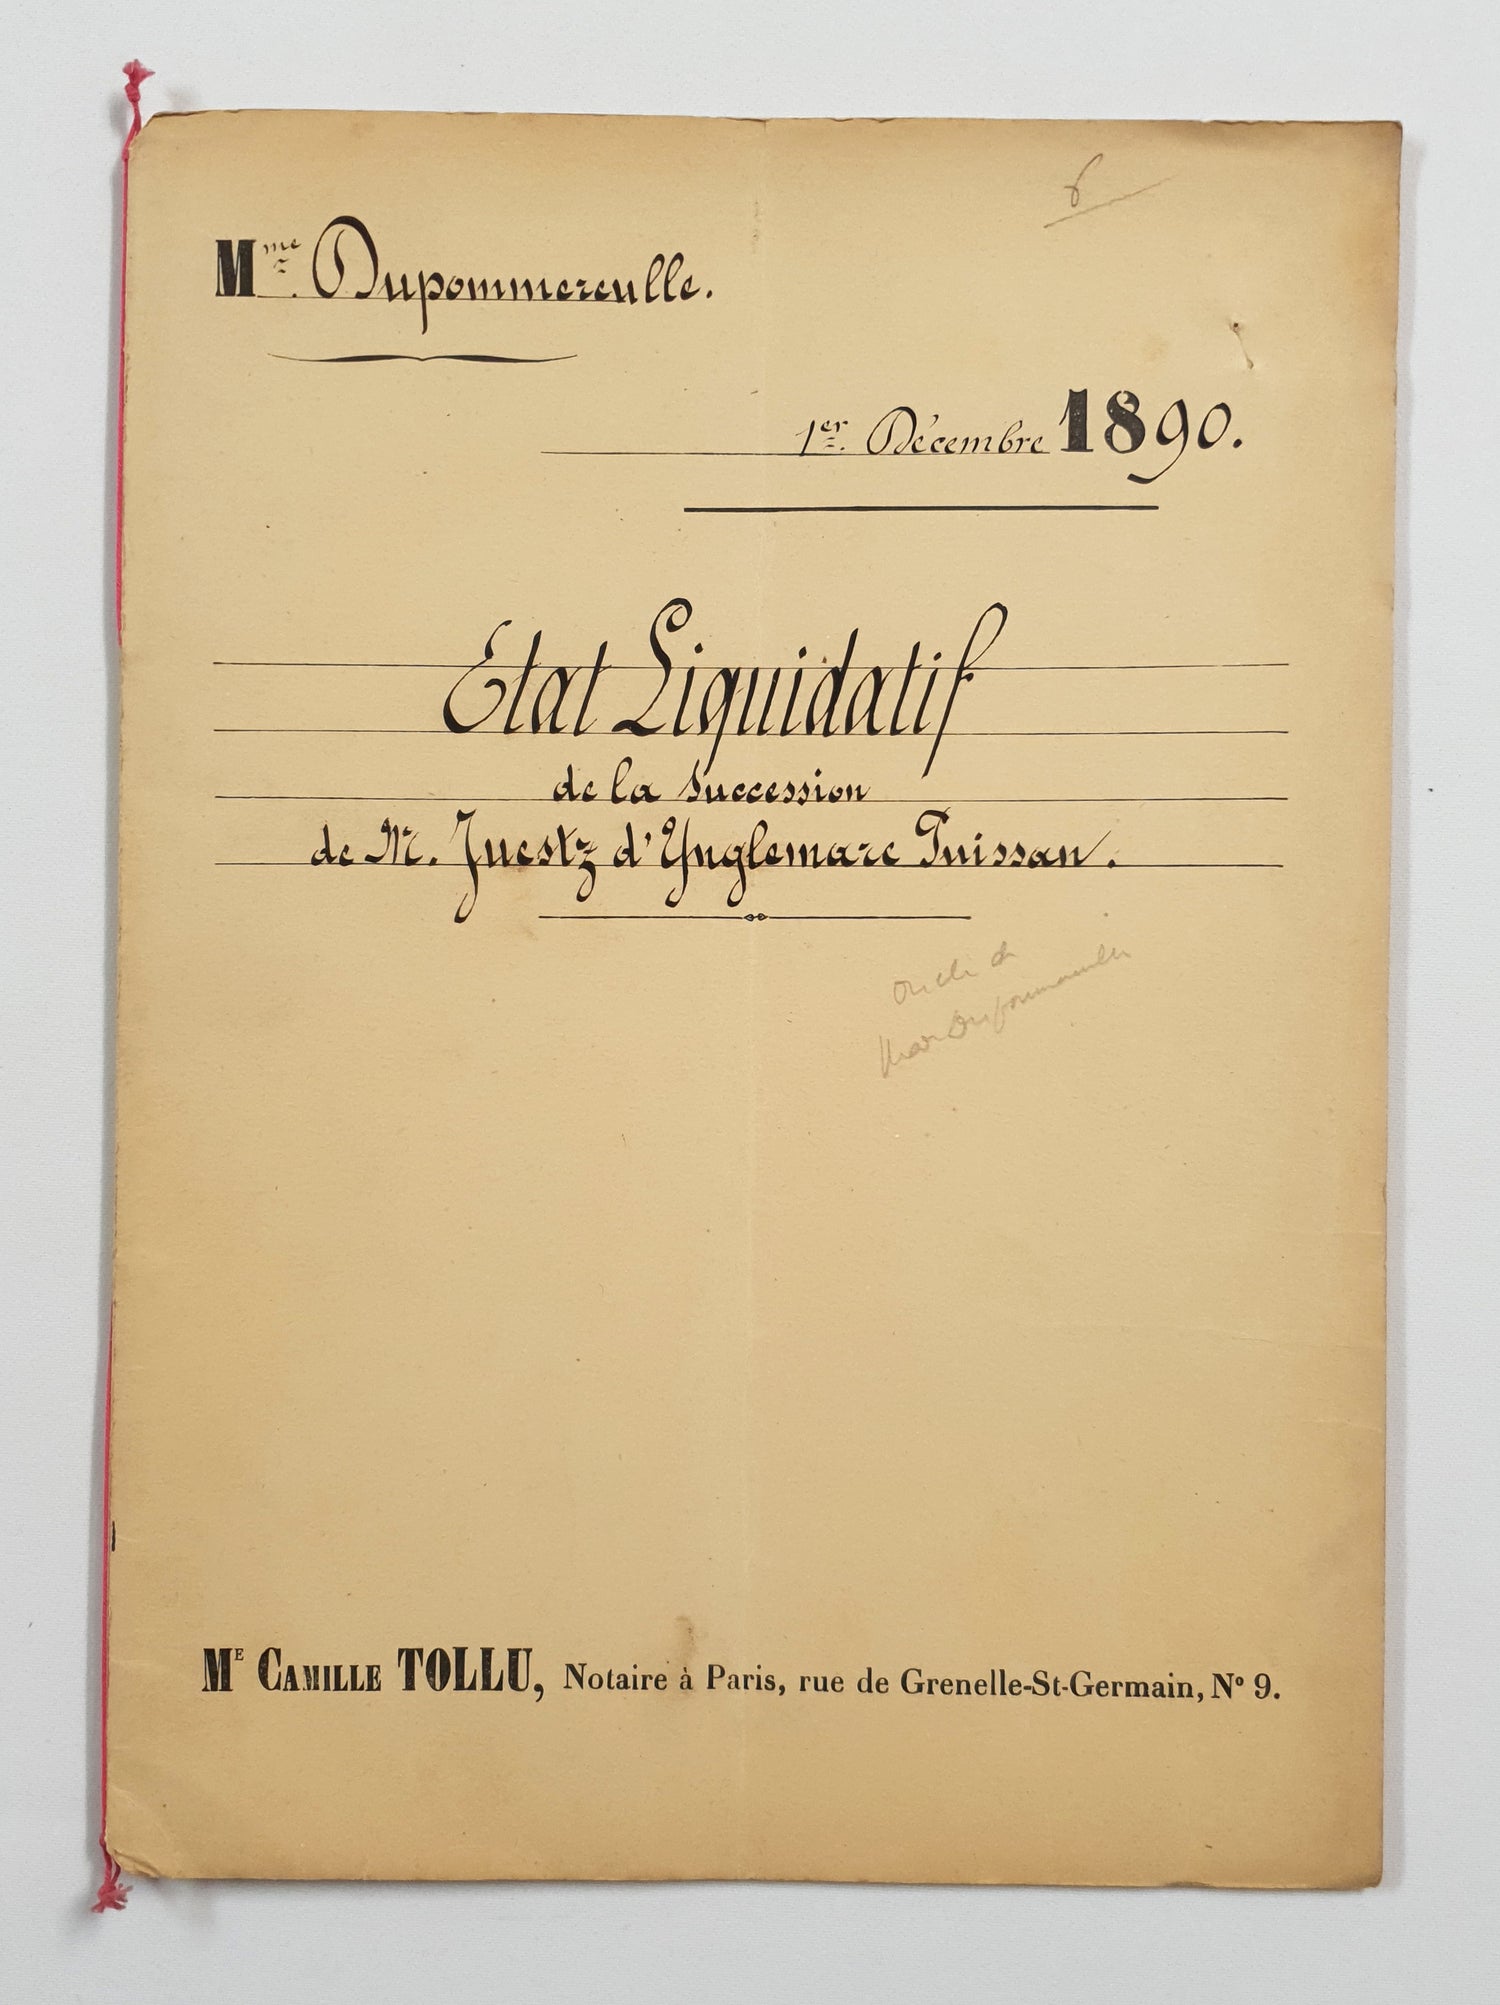 6
Mme Dupommereulle.
1er. Décembre 1890.
Etat Liquidatif
de la succession
de Mr. Juestz d'Ynglemare Puissan.
oncle de
M.E CAMILLE TOLLU, Notaire à Paris, rue de Grenelle-St-Germain, No 9.